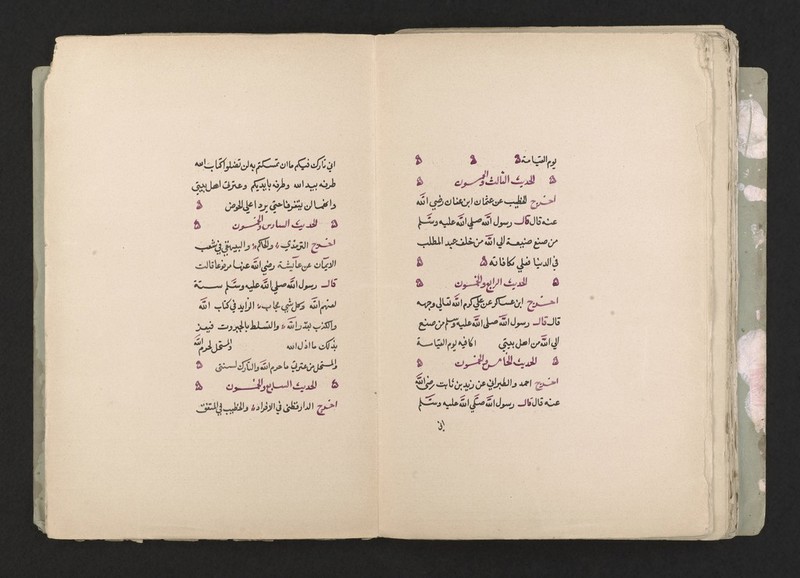 يوم القيامة
الحديث الثالث والخمسون
اخرج الخطيب عن عثمان ابن عفان رضي الله
عنه قال قال رسول الله صلي الله عليه وسلم
من صنع صنيعة الي الله من خلف عبد المطلب
في الدنيا فعلي مكافاته
الحديث الرابع والخمسون
اخرج ابن عساكر عن علي كرم الله تعالي وجهه
قال قال رسول الله صلى الله عليه وسلم من صنع
الي الله من اهل بيتي اكافيه يوم القيامة
الحديث الخامس والخمسون
اخرج احمد والطبراني عن زيد بن ثابت رضي الله
عنه قال قال رسول الله صلي الله عليه وسلم
اني
اني تارك فيكم ما ان تمسكتم به لن تضلوا كتاب الله
طرفه بيد الله وطرفه بايديكم وعترتي اهل بيتي
وانهما لن يتفرقا حتي يردا علي الحوض
الحديث السادس والخمسون
اخرج الترمذي والحاكم والبيهقي في شعب
الايمان عن عايشة رضي الله عنها مرفوعا قالت
قال رسول الله صلي الله عليه وسلم ستة
لعنهم الله وكل نبي مجاب الزايد في كتاب الله
والكذب بقدر الله والتسلط بالجبروت فيعز
بذلك ما اذل الله والمستحل لحرم الله
والمستحل من عترتي ما حرم الله والتارك لسنتي
الحديث السابع والخمسون
اخرج الدارقطني في الافراد والخطيب في المتفق